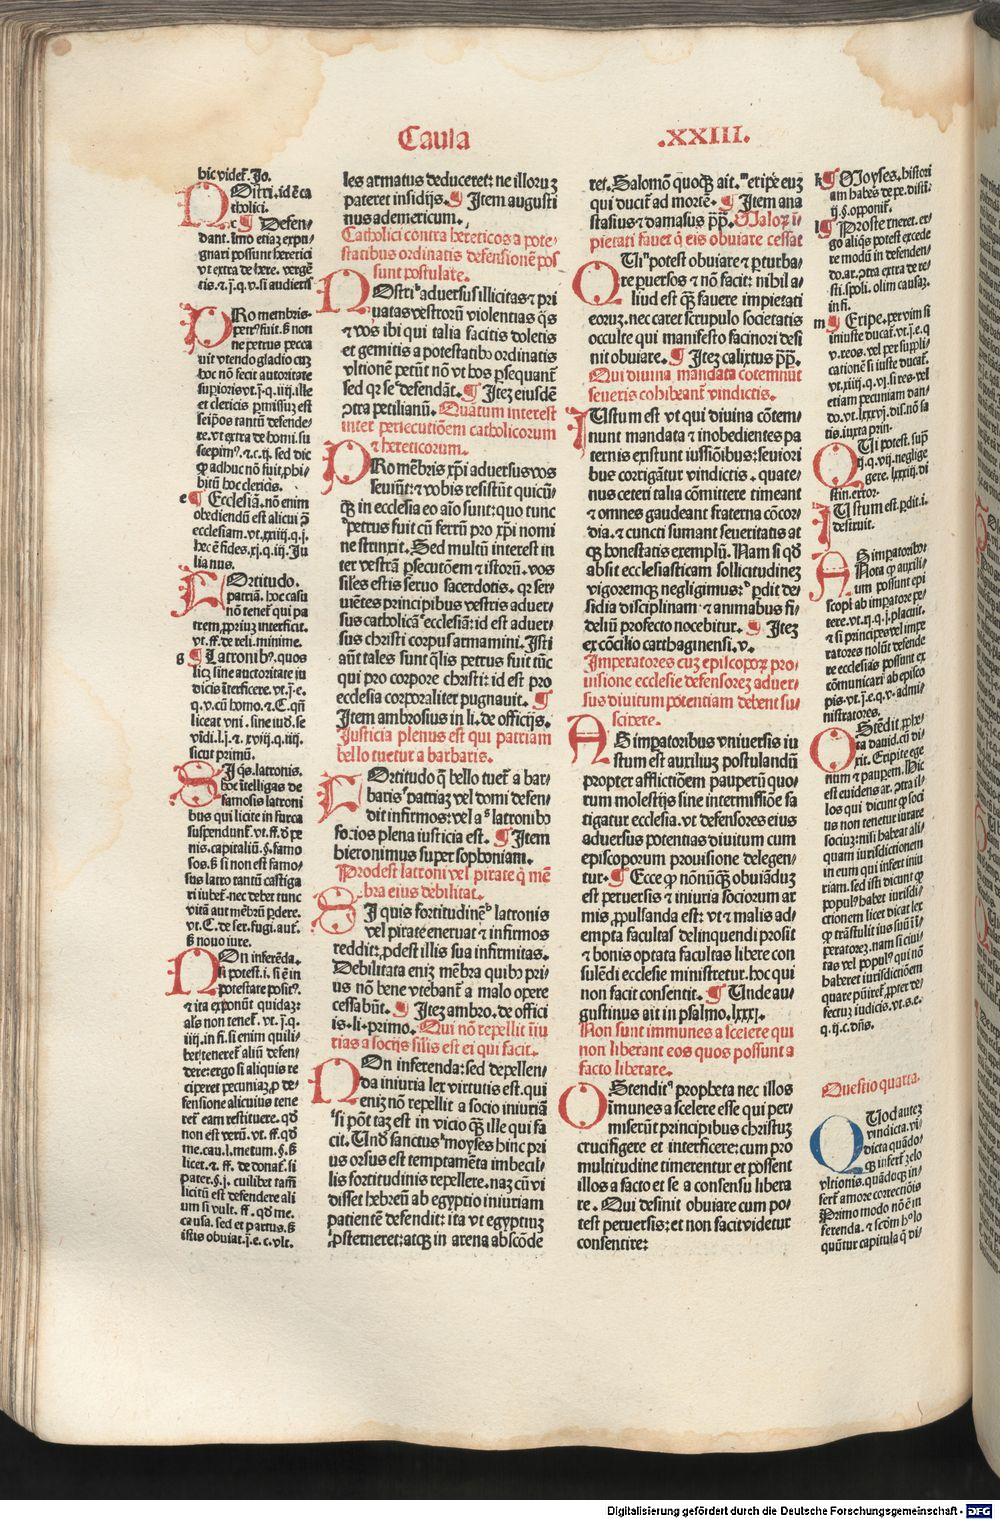 Causa .XXIII.
hic videt̄. Jo.
NOstri. id ē ca
tholici.
c ¶ Defen-
dant. īmo etiaꝫ expu-
gnari possunt heretici
vt extra de here. vergē
tis. ⁊ j. q. v. si audieris
PRo membris.
petr⁹ fuit. ß non
ne petrus pecca
uit vtendo gladio cuꝫ
hoc nō fecit autoritate
supioris vt. j. q. iiij. ille
et clericis pmissuꝫ est
seipos tantū defende-
re. vt extra de homi. su
scepim⁹. ⁊ c. ij. sed dic
ꝙ adhuc nō fuit ꝓhi-
bitū hoc clericis.
e ¶ Ecclesiā. nō enim
obediendū est alicui ꝯ
ecclesiam. vt. xxiij. q. j.
hec ē fides. xj. q. iij. Ju
lianus.
FOrtitudo.
patriā. hoc casu
nō tenet̄ qui pa
trem ꝓprium interficit.
vt. ff. de reli. minime.
g ¶ Latronib⁹. quos
licꝫ sine auctoritate iu
dicis īterficere. vt. j. e.
q. v. cū homo. ⁊. C. qn̄
liceat vni. sine iud. se
vīdi. l. j. ⁊. xviij. q. iij.
sicut primū.
SI q̄s. latronis.
hoc ītelligas de
famosis latroni
bus qui licite in furca
suspendunt̄. vt. ff. ð pe
nis. capitaliū. §. famo
sos. ß si non est famo-
sus latro tantū castiga
ri iubet̄. nec debet tunc
vitā aut mēbrū pdere.
vt. C. de ser. fugi. aut̄.
ß nouo iure.
NOn inferēda.
si potest. i. si ē in
potestate posit⁹.
⁊ ita exponūt quidaꝫ:
al̄s non tenet̄. vt. j. q.
iiij. in fi. si enim quili-
bet teneret̄ aliū defen-
dere: ergo si aliquis re
ciperet pecuniaꝫ ꝓ de-
fensione alicuius tene
ret̄ eam restituere. qd̄
non est verū. vt. ff. qd̄
me. cau. l. metum. §. ß
licet. ⁊. ff. de donat̄. si
pater. §. j. cuilibet tam̄
licitū est defendere ali
um si vult. ff. qd̄ me.
causa. sed et partus. ß
istis obuiat. j. e. c. vlt.
les armatus deduceret: ne illoruꝫ
pateret insidijs. ¶ Item augusti
nus ad emericum.
Catholici contra hereticos a pote-
statibus ordinatis defensionē pos
sunt postulate.
NOstri ᵇ aduersus illicitas ⁊ pri
uatas vestrorū violentias q̄s
⁊ vos ibi qui talia facitis doletis
et gemitis a potestatibꝫ ordinatis
vltionē petūt nō vt vos psequant̄
sed q̄ se ᶜ defendāt. ¶ Iteꝫ eiusdē
ꝯtra petilianū. Quātum interest
inter persecutiōem catholicorum
⁊ hereticorum.
PRo mēbris xp̄i aduersus vos
seuiūt: ⁊ vobis resistūt quicū
qꝫ in ecclesia eo aīo sunt: quo tunc
ᵈpetrus fuit cū ferrū pro xp̄i nomi
ne strinxit. Sed multū interest in
ter vestrā psecutōem ⁊ istorū. vos
siles estis seruo sacerdotis. qꝛ ser-
uiētes principibus vestris aduer-
sus catholicā ᵉecclesiā: id est aduer
sus christi corpus armamini. Isti
aūt tales sunt q̄lis petrus fuit tūc
qui pro corpore christi: id est pro
ecclesia corporaliter pugnauit. ¶
Item ambrosius in li. de officijs.
Justicia plenus est qui patriam
bello tuetur a barbaris.
FOrtitudo q̄ bello tuet̄ a bar-
baris ᶠpatriaꝫ vel domi defen-
dit infirmos: vel a ᵍ latronibꝫ
socios plena iusticia est. ¶ Item
hieronimus super sophoniam.
Prodest latroni vel pirate q̄ mē
bra eius debilitat.
SI quis fortitudinē ʰ latronis
vel pirate eneruat ⁊ infirmos
reddit: ꝓdest illis sua infirmitas.
Debilitata eniꝫ mēbra quibꝫ pri-
us nō bene vtebant̄ a malo opere
cessabūt. ¶ Iteꝫ ambro. de offici
is. li. primo. Qui nō repellit īiu
rias a socijs silis est ei qui facit.
NOn inferenda: sed depellen-
da iniuria lex virtutis est. qui
eniꝫ nō repellit a socio iniuriā
ⁱsi pōt taꝫ est in vicio qꝫ ille qui fa
cit. Vnð sanctus ᵏmoyses hinc pri
us orsus est temptamēta imbecil-
lis fortitudinis repellere. naꝫ cū vi
disset hebreū ab egyptio iniuriam
patientē defendit: ita vt egyptiuꝫ
ˡꝓsterneret: atqꝫ in arena abscōde
ret. Salomō quoqꝫ ait. ᵐeripe euꝫ
qui ducit̄ ad mortē. ¶ Item ana
stasius ⁊ damasus pp̄. Maloꝝ ī-
pietati fauet q̄ eis obuiare cessat
QUi ⁿpotest obuiare ⁊ pturba-
re puersos ⁊ nō facit: nihil a-
liud est qꝫ fauere impietati
eoruꝫ. nec caret scrupulo societatis
occulte qui manifesto facinori desi
nit obuiare. ¶ Iteꝫ calixtus pp̄.
Qui diuina mandata cōtemnūt
seueris cohibeant̄ vindictis.
IUstum est vt qui diuina cōtem-
nunt mandata ⁊ inobedientes pa
ternis existunt iussiōibus: seuiori
bus corrigātur vindictis. quate-
nus ceteri talia cōmittere timeant
⁊ omnes gaudeant fraterna cōcor
dia. ⁊ cuncti sumant seueritatis at
qꝫ honestatis exemplū. Nam si qð
absit ecclesiasticam sollicitudineꝫ
vigoremqꝫ negligimus: ᵒpdit de-
sidia disciplinam ⁊ animabus fi-
deliū profecto nocebitur. ¶ Iteꝫ
ex cōcilio carthaginensi. v.
Imperatores cuꝫ episcoporꝝ pro-
uisione ecclesie defensoreꝫ aduer-
sus diuitum potentiam debent su-
scipere.
AB impatoribus vniuersis iu
stum est auxiliuꝫ postulandū
propter afflictiōem pauperū quo-
rum molestijs sine intermissiōe fa
tigatur ecclesia. vt defensores eius
aduersus potentias diuitum cum
episcoporum prouisione delegen-
tur. ¶ Ecce ꝙ nōnūqꝫ obuiādūꝫ
est peruersis ⁊ iniuria sociorum ar
mis ꝓpulsanda est: vt ⁊ malis ad-
empta facultas delinquendi prosit
⁊ bonis optata facultas libere con
sulēdi ecclesie ministretur. hoc qui
non facit consentit. ¶ Unde au-
gustinus ait in psalmo. lxxxj.
Non sunt immunes a scelere qui
non liberant eos quos possunt a
facto liberare.
OStendit ᵠ propheta nec illos
īmunes a scelere esse qui per-
miserūt principibus christuꝫ
crucifigere et interficere: cum pro
multitudine timerentur et possent
illos a facto et se a consensu libera
re. Qui desinit obuiare cum po-
test peruersis: et non facit videtur
consentire:
k ¶ Moyses. histori
am habes de pe. disti.
ij. §. opponit̄.
l ¶ Prosterneret. er-
go aliqs potest excede
re modū in defenden-
do. ar. ꝯtra extra de re-
sti. spoli. olim causaꝫ.
in fi.
m ¶ Eripe. per vim si
iniuste ducat̄. vt. j. e. q
v. reos. vel per suppli-
cationē si iuste ducat̄.
vt. xiiij. q. vj. si res. vel
etiam pecuniam dan-
do. vt. lxxxvj. dis. nō sa
tis. iuxta prin.
QUi potest. supͣ
ij. q. vij. neglige
gere. lxxxiij. di
stin. error.
IUstum est. pdit. i.
destruit.
AB impatoribꝰ
Nota ꝙ auxili-
um possunt epi
scopi ab impatore pe-
tere. vt. xj. q. j. placuit.
⁊ si principes vel impe
ratores nolūt defende
re ecclesiaꝫ possunt ex
cōmunicari ab episco
pis. vt. j. e. q. v. admi-
nistratores.
OStēdit. ꝓphe-
ta dauid. cū di-
xit. Eripite ege
num ⁊ pauperē. Hic
est euidens ar. ꝯtra il-
los qui dicunt ꝙ soci
us non tenetur iuuare
sociuꝫ: nisi habeat ali-
quam iurisdictionem
in eum qui infert iniu
riam. sed isti dicunt ꝙ
popul⁹ habet iurisdi-
ctionem licet dicat lex
ꝙ trāstulit ius suū ī ī-
peratoreꝫ. nam si ciui-
tas vel popul⁹ qui nō
haberet iurisdictiōem
quare puniret̄ ꝓpter de-
fectuꝫ iudicis. vt. s. e.
q. ij. c. dn̄s.
Questio quarta.
QUod autez
vindicta. vi
dicta quādo-
qꝫ infert̄ zelo
vltionis. quādoqꝫ in-
fert̄ amore correctiōis
Primo modo nō ē in
ferenda. ⁊ scd̄m h⁹ lo
quūtur capitula q̄ di-
Digitalisierung gefördert durch die Deutsche Forschungsgemeinschaft - DFG